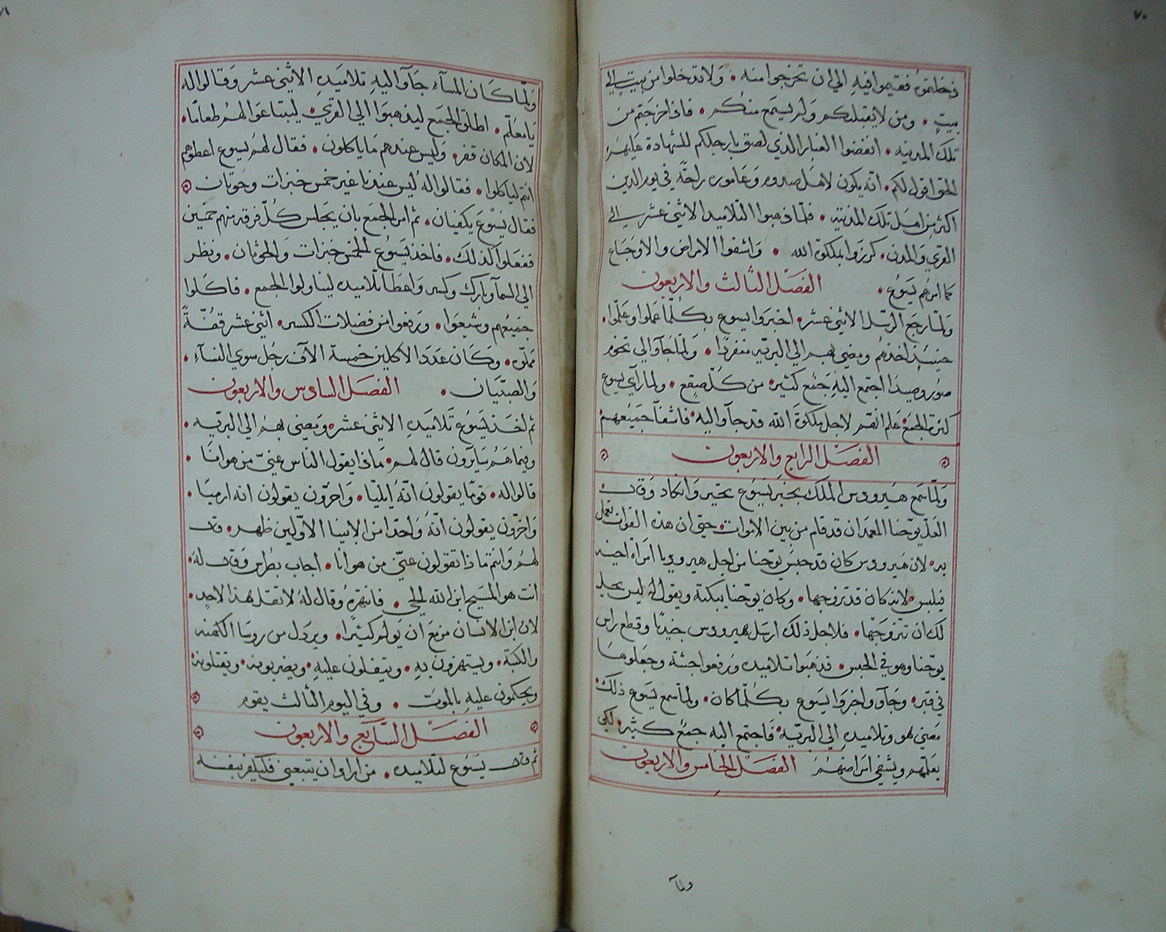 ٧٠
دخلتموه فقيموا فيه الي ان تخرجوا منه • ولا تدخلوا من بيت الي
بيت • ومن لا يقبلكم ولم يسمع منكم • فاذا خرجتم من
تلك المدينه • انفضوا الغبار الذي لصق بارجلكم للشهادة عليهم
الحق اقول لكم • انه يكون لاهل صدوم وعامورا راحة في يوم الدين
اكثر من اهل تلك المدينه • فلما ذهبوا التلاميد الاثني عشر الي
القري والمدن • كرزوا بملكوة الله • واشفوا الامراض والاوجاع
كما امرهم يسوع • الفصل الثالث والاربعون
ولما رجع الرسل الاثني عشر • اخبروا يسوع بكلما عملوا وعلموا •
حينيد اخدهم ومضي بهم الي البريه منفردا • ولما جاوا الي تخوم
صور وصيدا اجتمع اليه جمع كثير • من كل صقع • ولما راي يسوع
كثرة الجمع علم انهم لاجل ملكوة الله قد جاوا اليه • فاشفا جميعهم
الفصل الرابع والاربعون
ولما سمع هيرودس الملك بخبر يسوع تحير وانكاد وقال
لعل يوحنا المعمدان قد قام من بين الاموات • حتي ان هذه القوات تعمل
به • لان هيرودس كان قد حبس يوحنا من اجل هيروديا امراة اخيه
فيلبس • لانه كان قد تزوجها • وكان يوحنا يبكته ويقول له ليس يحل
لك ان تتزوجها • فلاجل ذلك ارسل هيرودس جندا وقطع راس
يوحنا وهو في الحبس • قد هبوا تلاميده ورفعوا جثته وجعلوها
في قبر • وجاوا واخبروا يسوع بكلما كان • ولما سمع يسوع ذلك
مضي هو وتلاميده الي البرية • فاجتمع اليه جمع كثير • لكي
يعلمهم ويشفي امراضهم • الفصل الخامس والاربعون
ولما
٧١
ولما كان المسآء • جآوا اليه تلاميده الاثني عشر وقالوا له
يا معلم • اطلق الجمع ليدهبوا الي القري • ليبتاعوا لهم طعاما •
لان المكان قفر • وليس عندهم ما ياكلون • فقال لهم يسوع اعطوهم
انتم لياكلوا • فقالوا له ليس عندنا غير خمس خبزات وحوتان
فقال يسوع يكفيان • ثم امر الجمع بان يجلس كل فرقه منهم خمسين
ففعلوا كذلك • فاخد يسوع الخمس خبزات والحوتان • ونظر
الي السمآ وبارك وكسر واعطا تلاميده ليناولوا الجمع • فاكلوا
جميعهم وشبعوا • ورفعوا من فضلات الكسر • اثني عشر قفة
مملى • وكان عدد الاكلين خمسة الاف رجل سوي النسآء
والصبيان • الفصل السادس والاربعون
ثم اخد يسوع تلاميده الاثني عشر ومضي بهم الي البريه •
وبيما هم سايرون قال لهم • ماذا يقول الناس عني من هو انا •
قالوا له • قوما يقولون انه ايليا • واخرون يقولون انه ارميا •
واخرون يقولون انه واحد من الانبيا الاولين ظهر • قال
لهم وانتم ماذا تقولون عني من هو انا • اجاب بطرس وقال له •
انت هو المسيح ابن الله الحي • فانتهره وقال له لا تقل هذا لاحد •
لان ابن الانسان مزمع ان يولم كثيرا • ويردل من روسا الكهنه
والكتبة • ويستهزون به • ويتفلون عليه • ويضربونه • ويقتلونه •
ويحكمون عليه بالموت • وفي اليوم الثالث يقوم
الفصل السابع والاربعون
ثم قال يسوع لتلاميده • من اراد ان يتبعني فليكفر بنفسه